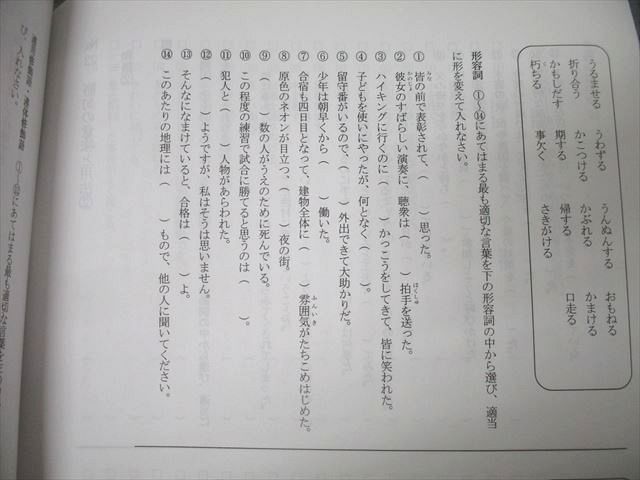 うるませる　うわずる　うんぬんする　おもねる
折り合う　かこつける　かぶれる　かまける
かもしだす　期する　帰する　口走る
朽ちる　事欠く　さきがける
形容詞　①～⑭にあてはまる最も適切な言葉を下の形容詞の中から選び、適当
に形を変えて入れなさい。
①　皆の前で表彰されて、（　　）思った。
②　彼女のすばらしい演奏に、聴衆は（　　）拍手を送った。
③　ハイキングに行くのに（　　）かっこうをしてきて、皆に笑われた。
④　子どもを使いにやったが、何となく（　　）。
⑤　留守番がいるので、（　　）外出できて大助かりだ。
⑥　少年は朝早くから（　　）働いた。
⑦　合宿も四日目となって、建物全体に（　　）雰囲気がたちこめはじめた。
⑧　原色のネオンが目立つ、（　　）夜の街。
⑨　（　　）数の人がうえのために死んでいる。
⑩　この程度の練習で試合に勝てると思うのは（　　）。
⑪　犯人と（　　）人物があらわれた。
⑫　（　　）ようですが、私はそうは思いません。
⑬　そんなになまけていると、合格は（　　）よ。
⑭　このあたりの地理には（　　）もので、他の人に聞いてください。
①～⑭にあてはまる最も適切な言葉を
び、入れなさい。